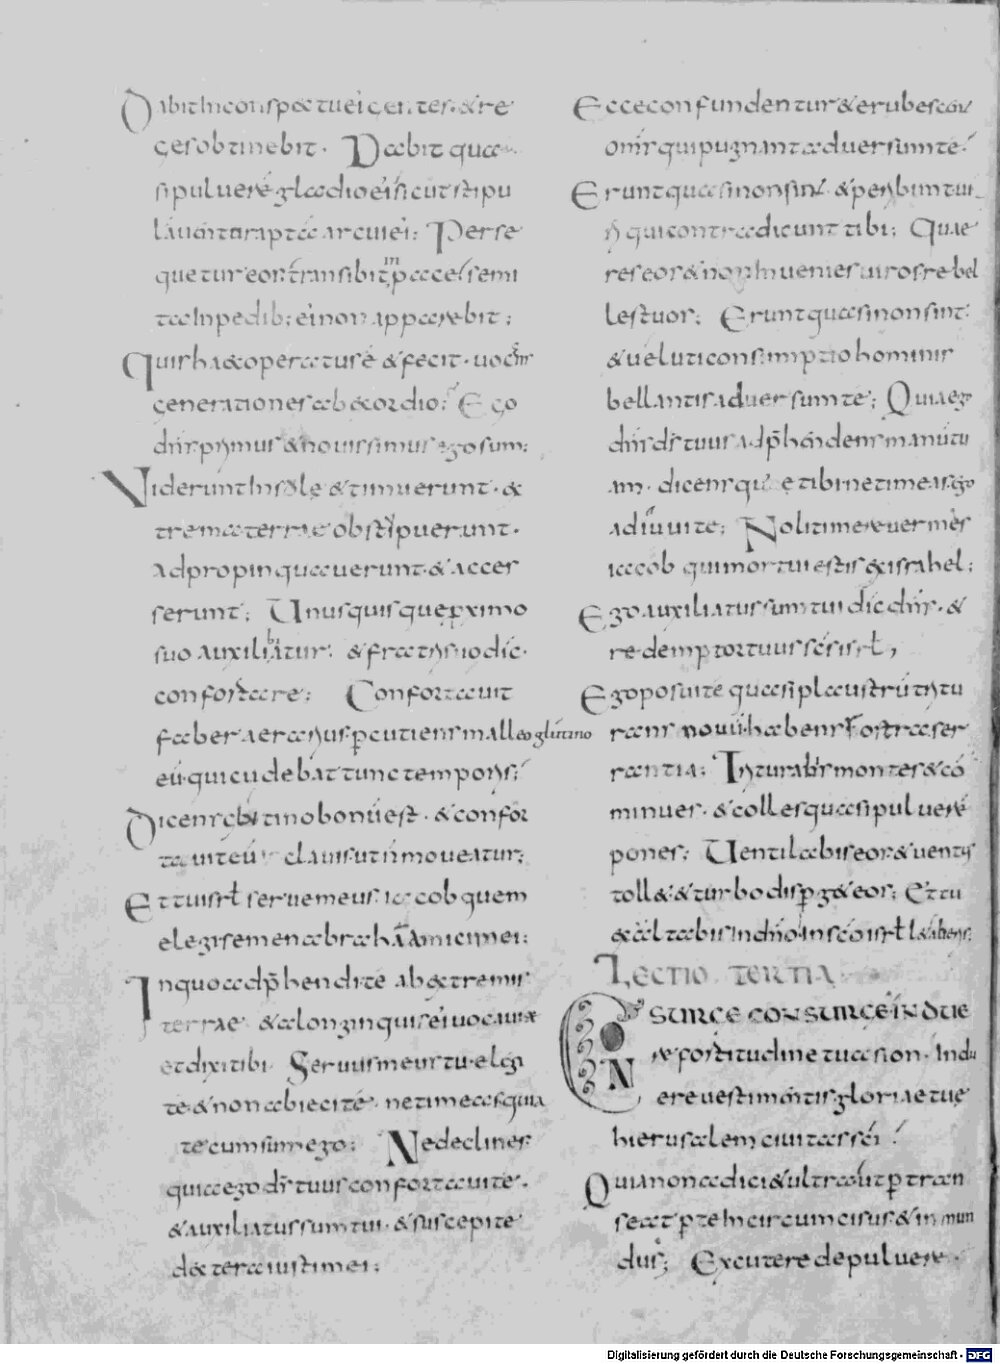 Dabit In conspectu ei gentes. & re
ges obtinebit. Dabit qua
si puluerē gladio ei᾽. sicut stipu
lā uento raptā arcui ei᾽; Perse
quetur eos transibit In pace. semi
ta In pedib; ei᾽ non apparebit;
Quis haec operatus ē & fecit. uocans
generationes ab exordio; Ego
dn̄s primus & nouissimus ego sum;
Viderunt Insulę & timuerunt. &
trema terrae obstipuerunt.
adpropinquauerunt. & acces
serunt; Unusquisque proximo
suo auxiliabitur. & fratri suo dic̄.
confortare; Confortauit
faber aerarius percutiens malleo glutino
eū qui cudebat tunc temporis;
Dicens glutino bonū est. & confor
tauit eū clauis ut n̄ moueatur;
Et tu isrl̄ serue meus. iacob quem
elegi semen abrahā amici mei;
In quo adp̄hendi te ab extremis
terrae & a longinquis ei᾽ uocaui te
et dixi tibi. Seruus meus tu. elegi
te. & non abieci te. ne timeas quia
tecum sum ego; Ne declines
quia ego ds̄ tuus confortaui te.
& auxiliatus sum tui. & suscepi te
dextera iusti mei;
Ecce confundentur & erubescent
om̄s qui pugnant aduersum te.
Erunt quasi non sint. & peribunt ui
ri qui contradicunt tibi; Quae
res eos & non Inuenies uiros rebel
les tuos; Erunt quasi non sint.
& ueluti consumptio hominis
bellantis aduersum te; Quia ego
dn̄s ds̄ tuus adp̄hendens manū tu
am. dicens que tibi ne timeas ego
adiuui te; Noli timere uermes
iacob qui mortui estis ex israhel;
Ego auxiliatus sum tui dic̄ dn̄s. &
redemptor tuus sc̄s isrl̄;
Ego posui te quasi plaustrū tritu
rans nouū. habens rostra ser
rantia; Triturabis montes & cō
minues. & colles quasi puluerē
pones; Uentilabis eos & uentus
toll& & turbo disperg& eos; Et tu
exaltabis In dn̄o In sc̄o isrl̄ l&aberis;
LECTIO TERTIA
CONSURGE CONSURGE INDUE
re fortitudine tua sion. Indu
ere uestimentis gloriae tue
hierusalem ciuitas sc̄i.
Quia non adici& ultra ut p̄tran
seat p̄ te Incircumcisus & inmun
dus; Excutere de puluere.
Digitalisierung gefördert durch die Deutsche Forschungsgemeinschaft - DFG